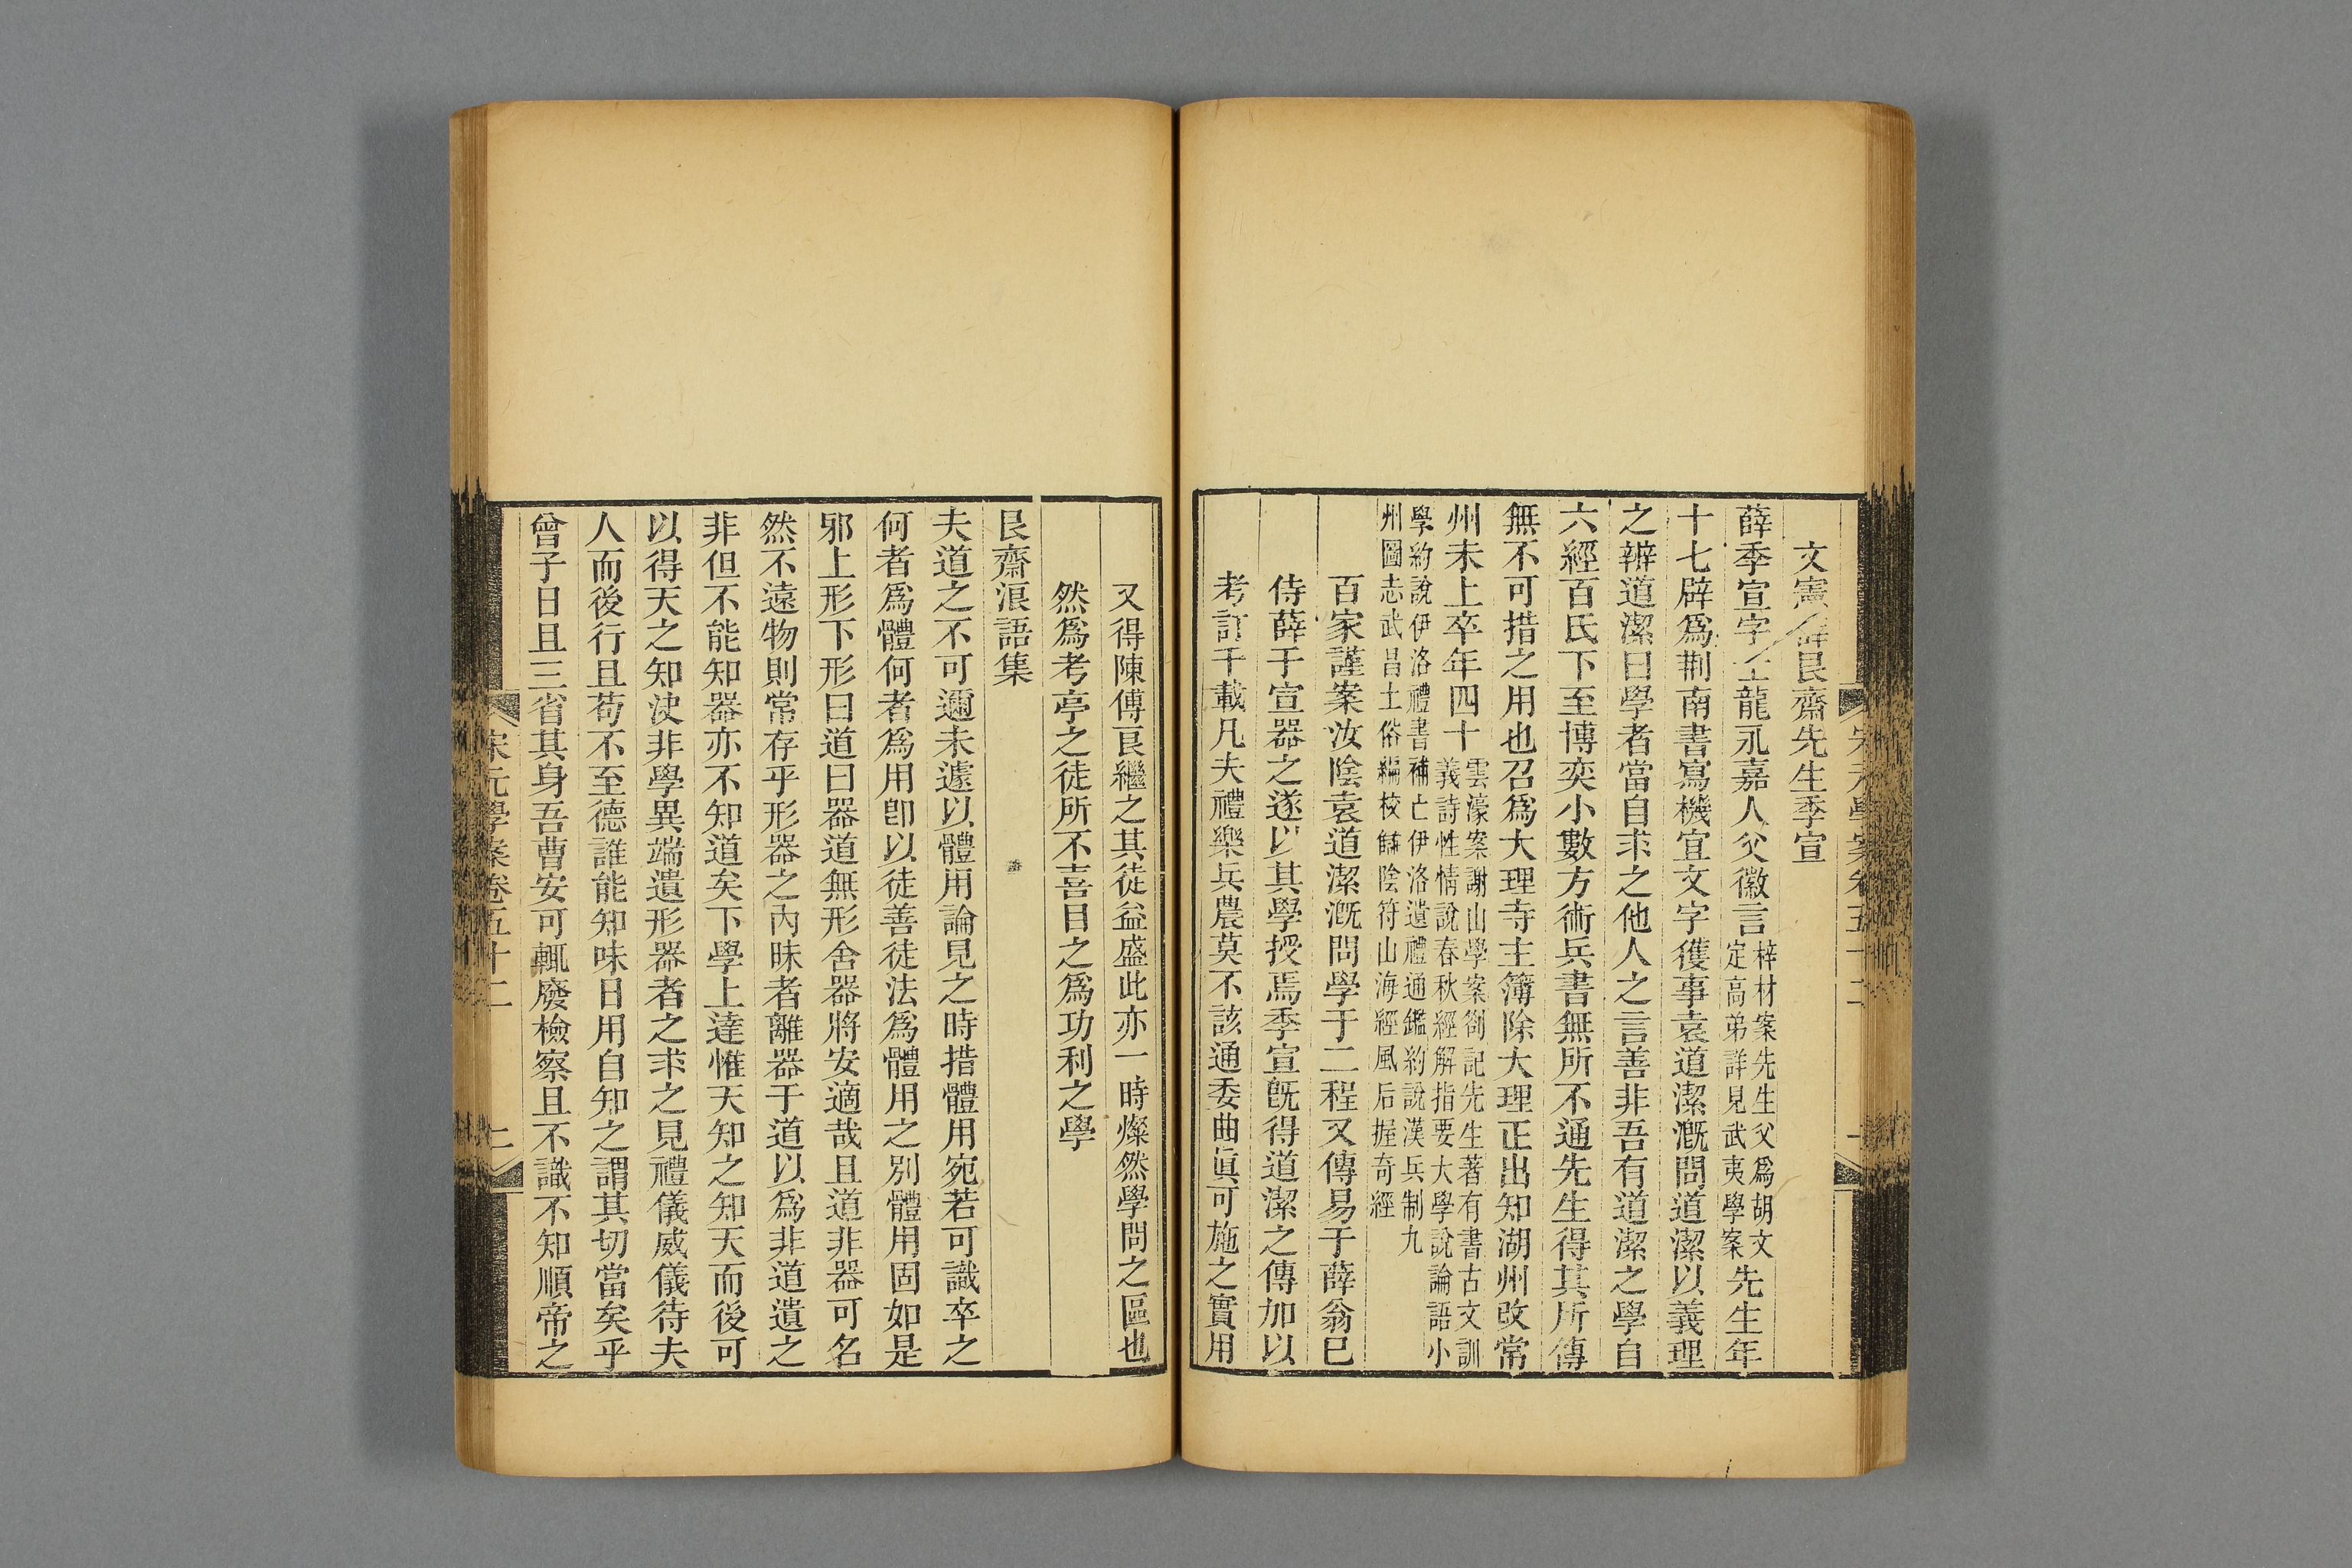 宋元學案卷五十二
文憲薛艮齋先生季宣
薛季宣字士龍永嘉人父徽言梓材案先生父爲胡文定高弟詳見武夷學案先生年
十七辟爲荆南書寫機宜文字獲事袁道潔溉問道潔以義理
之辨道潔曰學者當自求之他人之言善非吾有道潔之學自
六經百氏下至博奕小數方術兵書無所不通先生得其所傳
無不可措之用也召爲大理寺主簿除大理正出知湖州改常
州未上卒年四十雲濠案謝山學案劄記先生著有書古文訓義詩性情說春秋經解指要大學說論語小
學約說伊洛禮書補亡伊洛遺禮通鑑約說漢兵制九州圖志武昌土俗編校讎陰符山海經風后握奇經
百家謹案汝陰袁道潔溉問學于二程又傳易于薛翁已
侍薛于宣器之遂以其學授焉季宣旣得道潔之傳加以
考訂千載凡夫禮樂兵農莫不該通委曲眞可施之實用
又得陳傅良繼之其徒益盛此亦一時燦然學問之區也
然爲考亭之徒所不喜目之爲功利之學
艮齋浪語集
夫道之不可邇未遽以體用論見之時措體用宛若可識卒之
何者爲體何者爲用卽以徒善徒法爲體用之別體用固如是
邪上形下形曰道曰器道無形舍器將安適哉且道非器可名
然不遠物則常存乎形器之內昧者離器于道以爲非道遺之
非但不能知器亦不知道矣下學上達惟天知之知天而後可
以得天之知決非學異端遺形器者之求之見禮儀威儀待夫
人而後行且苟不至德誰能知味日用自知之謂其切當矣乎
曾子日且三省其身吾曹安可輒廢檢察且不識不知順帝之
宋元學案卷五十二
二